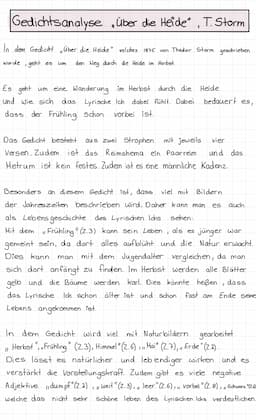 Gedichtsanalyse „Über die Heide", T. Storm
In dem Gedicht „Über die Heide" welches 1875 von Theodor Storm geschrieben
wurde, geht es um den Weg durch die Heide im Herbst.
Es geht um eine Wanderung im Herbst durch die Heide
und wie sich das Lyrische Ich dabei fühlt. Dabei bedauert es,
dass der Frühling schon vorbei ist.
Das Gedicht besteht aus zwei Strophen mit jeweils vier
Versen. Zudem ist das Reimschema ein Paarreim und das
Metrum ist kein festes. Zudem ist es eine männliche Kadenz.
Besonders an diesem Gedicht ist, dass viel mit Bildern
der Jahreszeiten beschrieben wird. Daher kann man es auch
als Lebensgeschichte des Lyrischen Ichs sehen:
Mit dem „Frühling" (Z.3) kann sein Leben, als es jünger war
gemeint sein, da dort alles aufblüht und die Natur erwacht.
Dies kann man mit dem Jugendalter vergleichen, da man
sich dort anfängt zu finden. Im Herbst werden alle Blätter
gelb und die Bäume werden karl. Dies könnte heißen, dass
das Lyrische Ich schon älter ist und schon fast am Ende seine
Lebens angekommen ist.
In dem Gedicht wird viel mit Naturbildern gearbeitet
„Herbst", „Frühling" (Z.3), Himmel" (Z.6), „Mai" (Z.7), „Erde" (Z.2).
Dies lässt es natürlicher und lebendiger wirken und es
verstärkt die Vorstellungskraft. Zudem gibt es viele negative
Adjektive „dumpf" (Z.2), „weit" (Z.3), „leer" (Z.6), „vorbei" (Z.8),
welche das nicht sehr schöne leben des Lyrischen Ichs verdeutlichen.